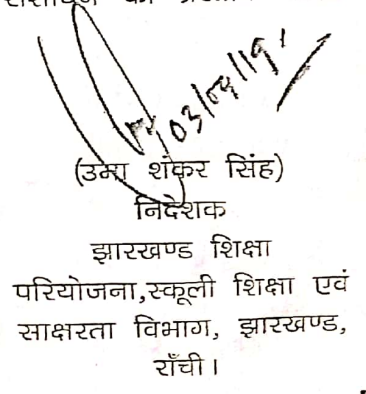 03/04/19
(उमा शंकर सिंह)
निदेशक
झारखण्ड शिक्षा
परियोजना,स्कूली शिक्षा एवं
साक्षरता विभाग, झारखण्ड,
राँची।